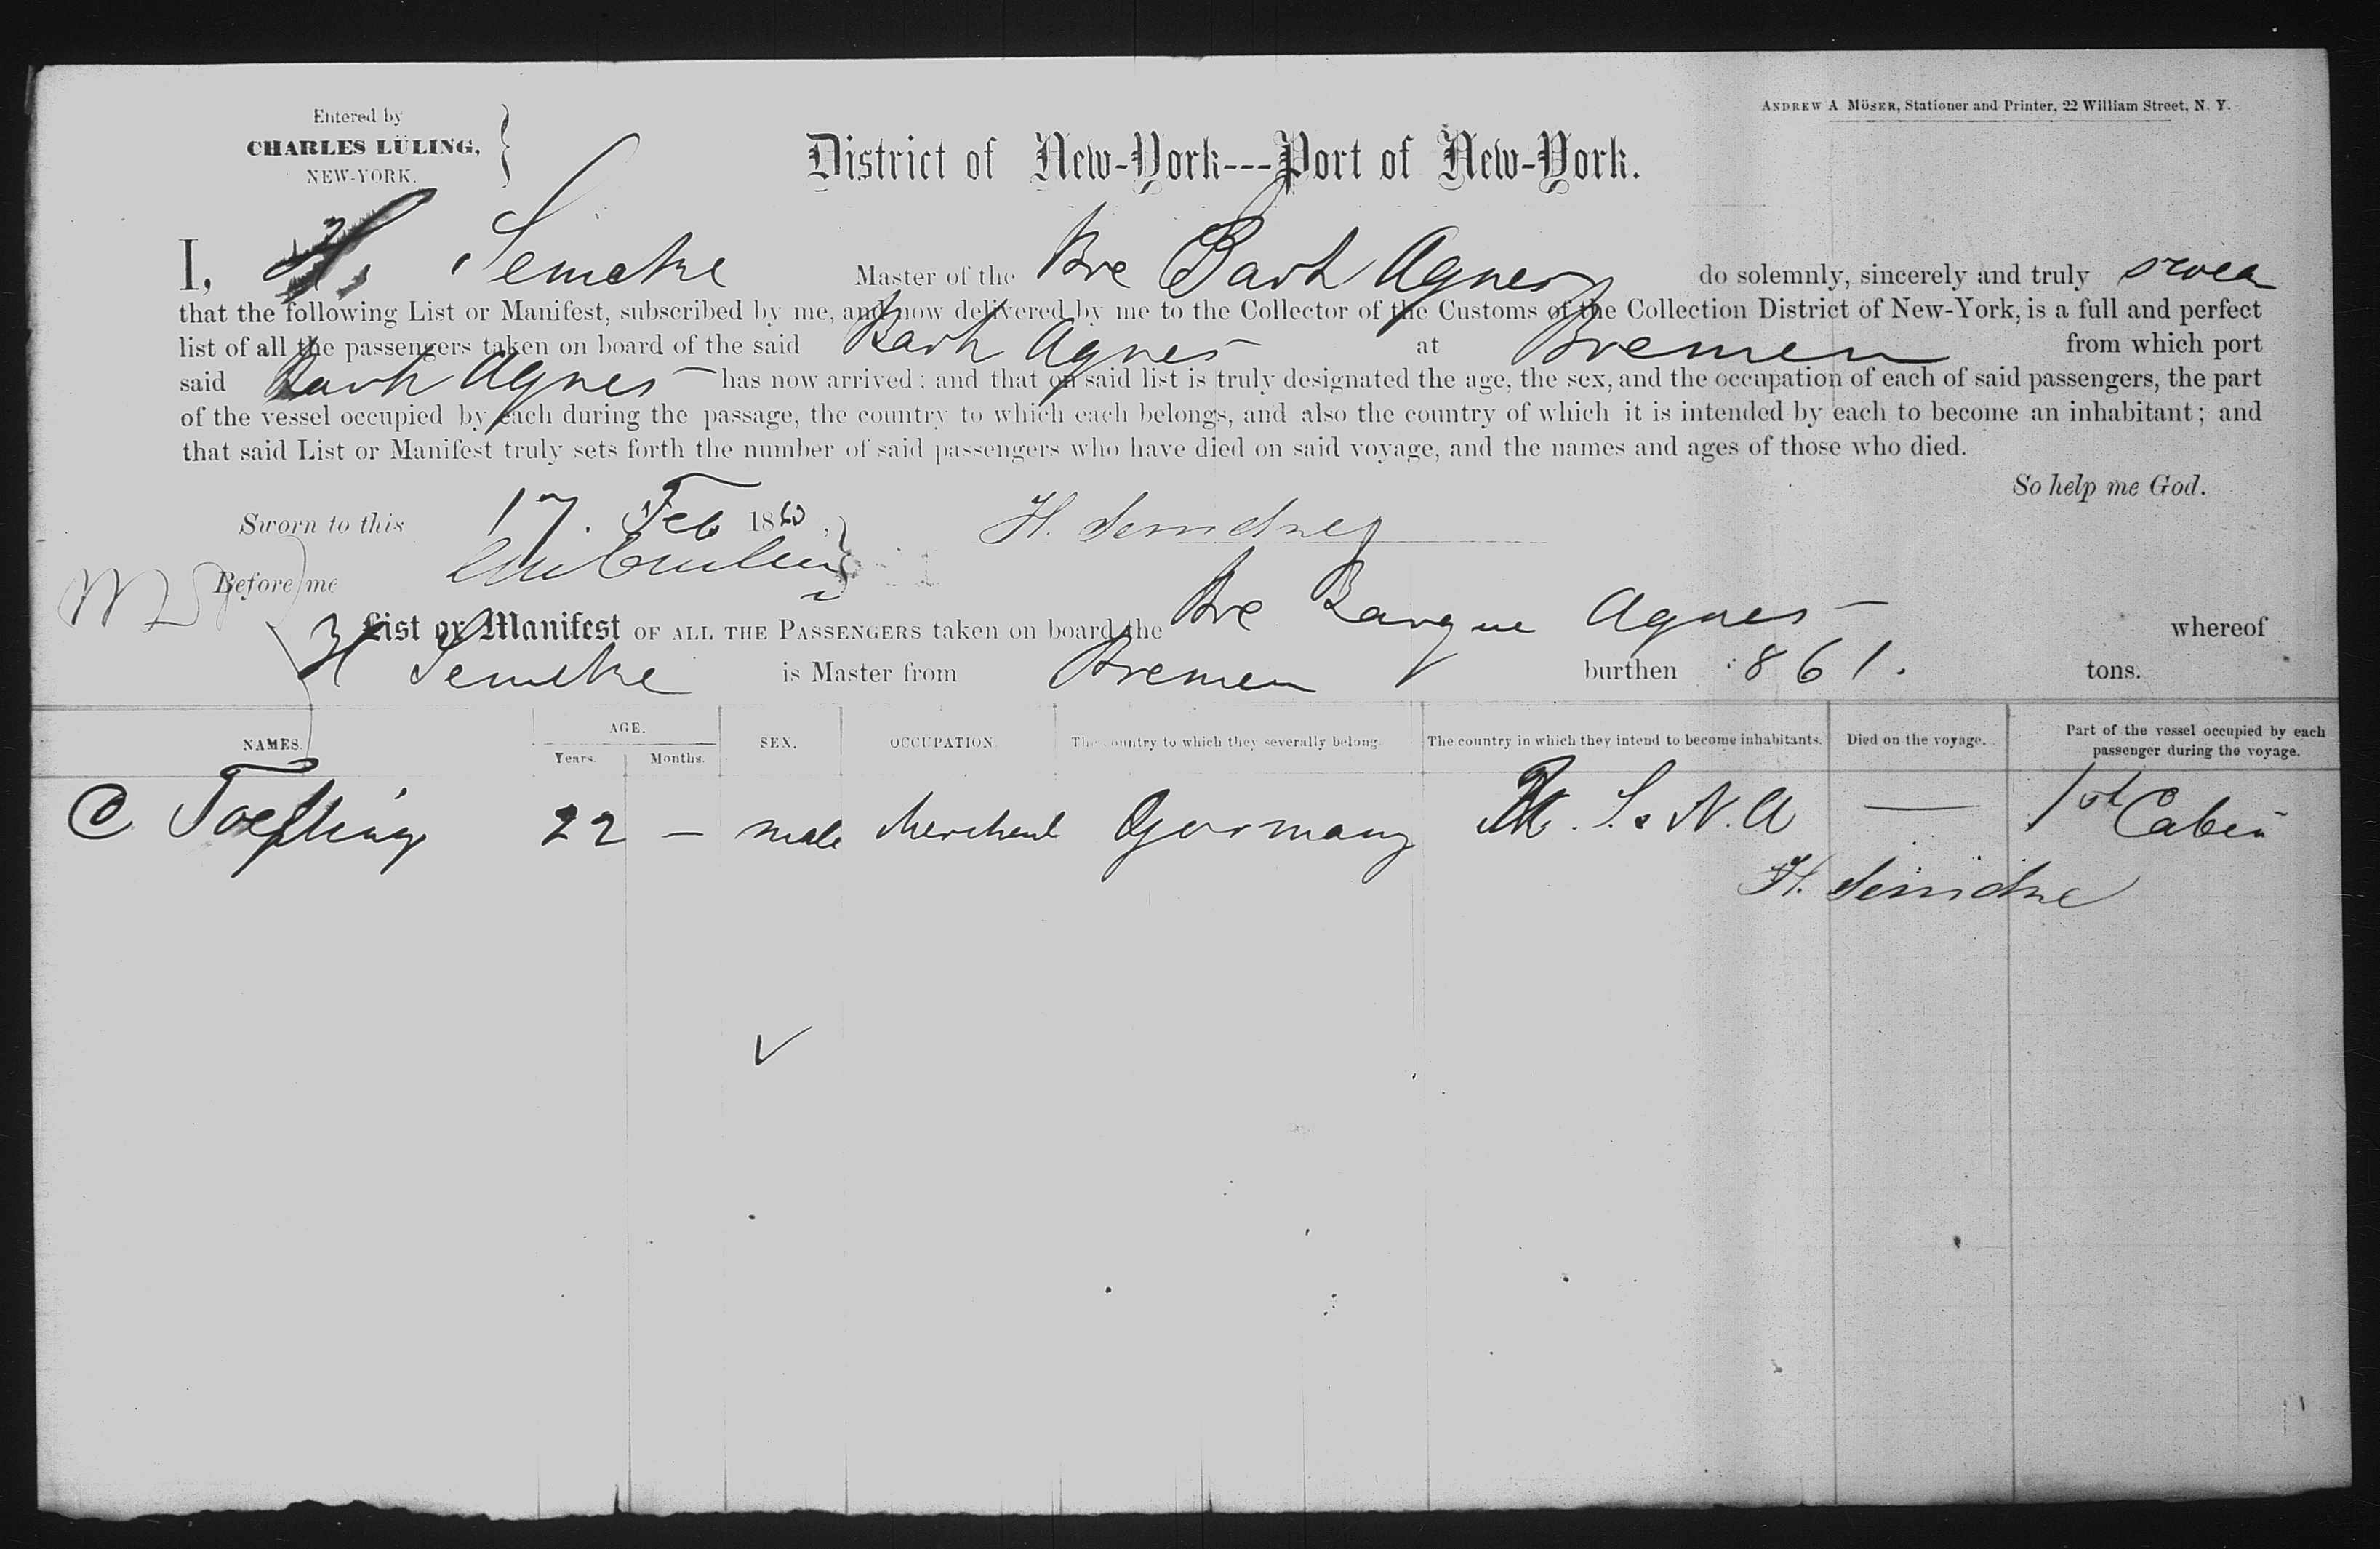 ANDREW A. MÖSER, Stationer and Printer, 22 William Street, N. Y.
Entered by
CHARLES LÜLING,
NEW-YORK.
District of New-York---Port of New-York.
I, H. Semcke Master of the Bre Bark Agnes do solemnly, sincerely and truly swear
that the following List or Manifest, subscribed by me, and now delivered by me to the Collector of the Customs of the Collection District of New-York, is a full and perfect
list of all the passengers taken on board of the said Bark Agnes at Bremen from which port
said Bark Agnes has now arrived; and that on said list is truly designated the age, the sex, and the occupation of each of said passengers, the part
of the vessel occupied by each during the passage, the country to which each belongs, and also the country of which it is intended by each to become an inhabitant; and
that said List or Manifest truly sets forth the number of said passengers who have died on said voyage, and the names and ages of those who died.
So help me God.
Sworn to this 17. Feb 1863, H. Semcke
Before me
List or Manifest OF ALL THE PASSENGERS taken on board the Bre Barque Agnes whereof
H Semcke is Master from Bremen burthen 861. tons.
NAMES. AGE. Years. Months. SEX. OCCUPATION. The country to which they severally belong The country in which they intend to become inhabitants. Died on the voyage. Part of the vessel occupied by each passenger during the voyage.
C 22 — male Merchant Germany U. S. N. A — 1st Cabin
H. Semcke